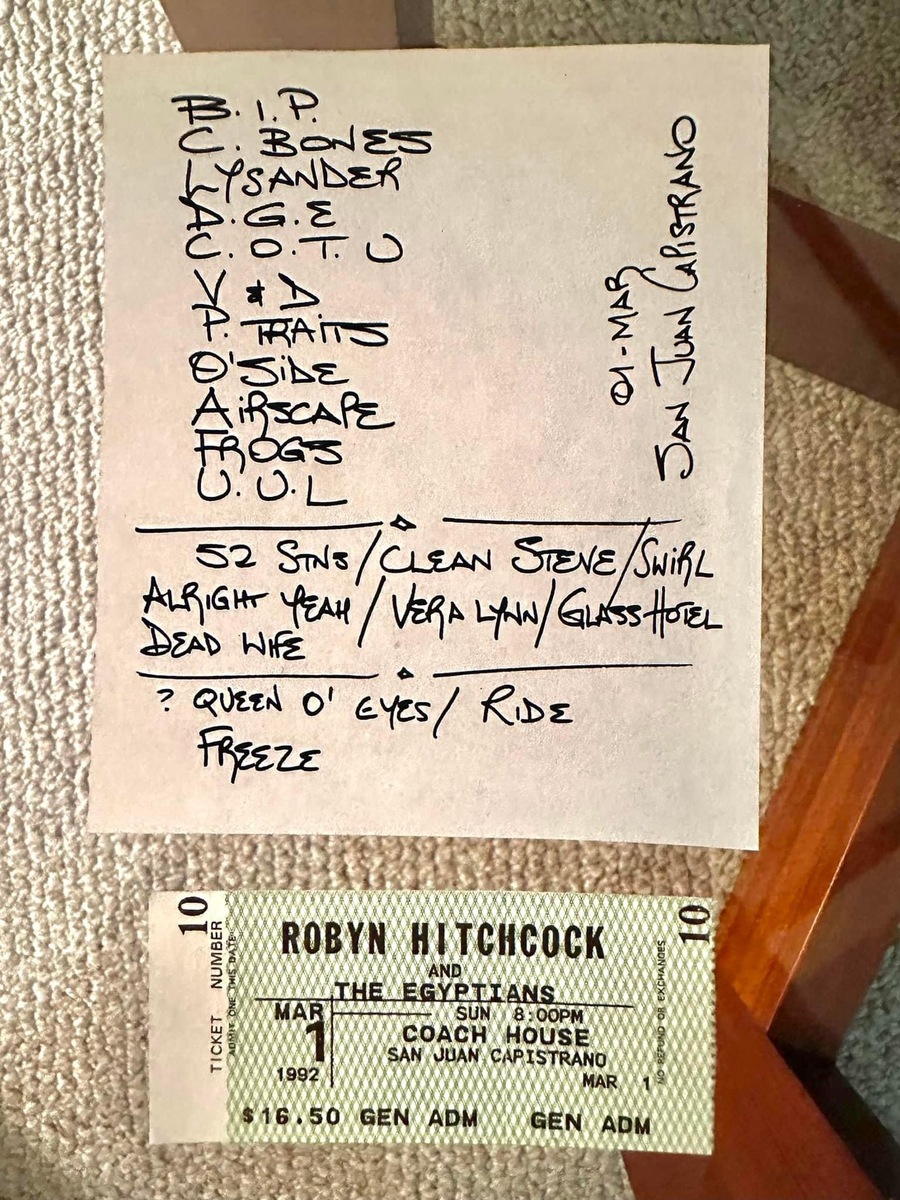 B.I.P.
C. BONES
LYSANDER
D.G.E
C.O.T.U
V & D
P. TRAITS
O'SIDE
AIRSCAPE
FROGS
U.U.L
01-MAR
SAN JUAN CAPISTRANO
52 STNS/CLEAN STEVE/SWIRL
ALRIGHT YEAH/VERA LYNN/GLASS HOTEL
DEAD WIFE
? QUEEN O' EYES/ RIDE
FREEZE
10
TICKET NUMBER
ADMIT ONE THIS DATE
ROBYN HITCHCOCK
AND
THE EGYPTIANS
MAR
1
1992
SUN 8:00PM
COACH HOUSE
SAN JUAN CAPISTRANO
MAR 1
$16.50 GEN ADM GEN ADM
10
NO REFUND OR EXCHANGES